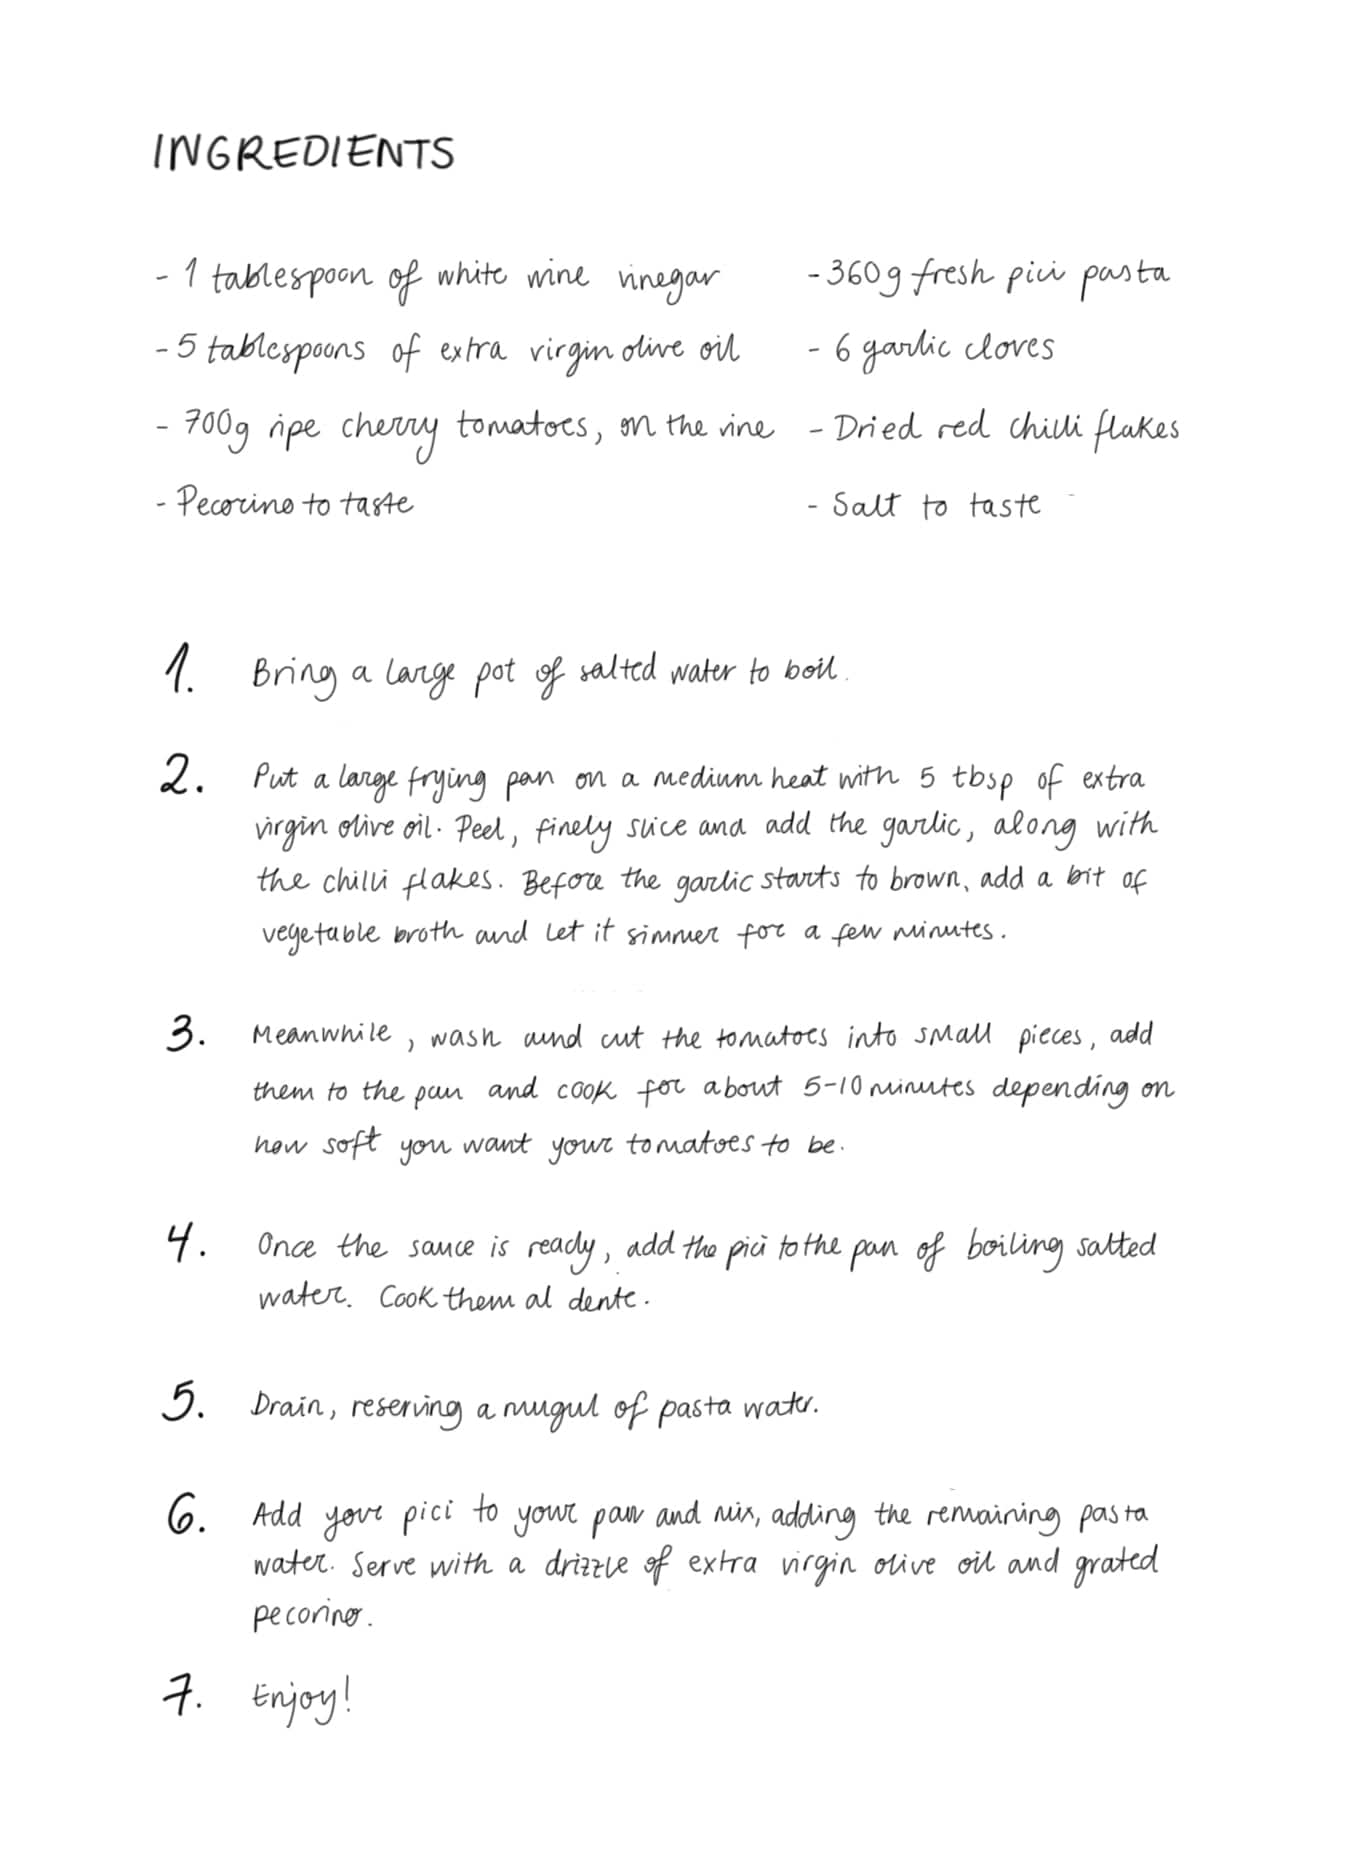 INGREDIENTS
- 1 tablespoon of white wine vinegar
- 5 tablespoons of extra virgin olive oil
- 700g ripe cherry tomatoes, on the vine
- Pecorino to taste
- 360g fresh pici pasta
- 6 garlic cloves
- Dried red chilli flakes
- Salt to taste
1. Bring a large pot of salted water to boil.
2. Put a large frying pan on a medium heat with 5 tbsp of extra
virgin olive oil. Peel, finely slice and add the garlic, along with
the chilli flakes. Before the garlic starts to brown, add a bit of
vegetable broth and let it simmer for a few minutes.
3. Meanwhile, wash and cut the tomatoes into small pieces, add
them to the pan and cook for about 5-10 minutes depending on
how soft you want your tomatoes to be.
4. Once the sauce is ready, add the pici to the pan of boiling salted
water. Cook them al dente.
5. Drain, reserving a mugul of pasta water.
6. Add your pici to your pan and mix, adding the remaining pasta
water. Serve with a drizzle of extra virgin olive oil and grated
pecorino.
7. Enjoy!